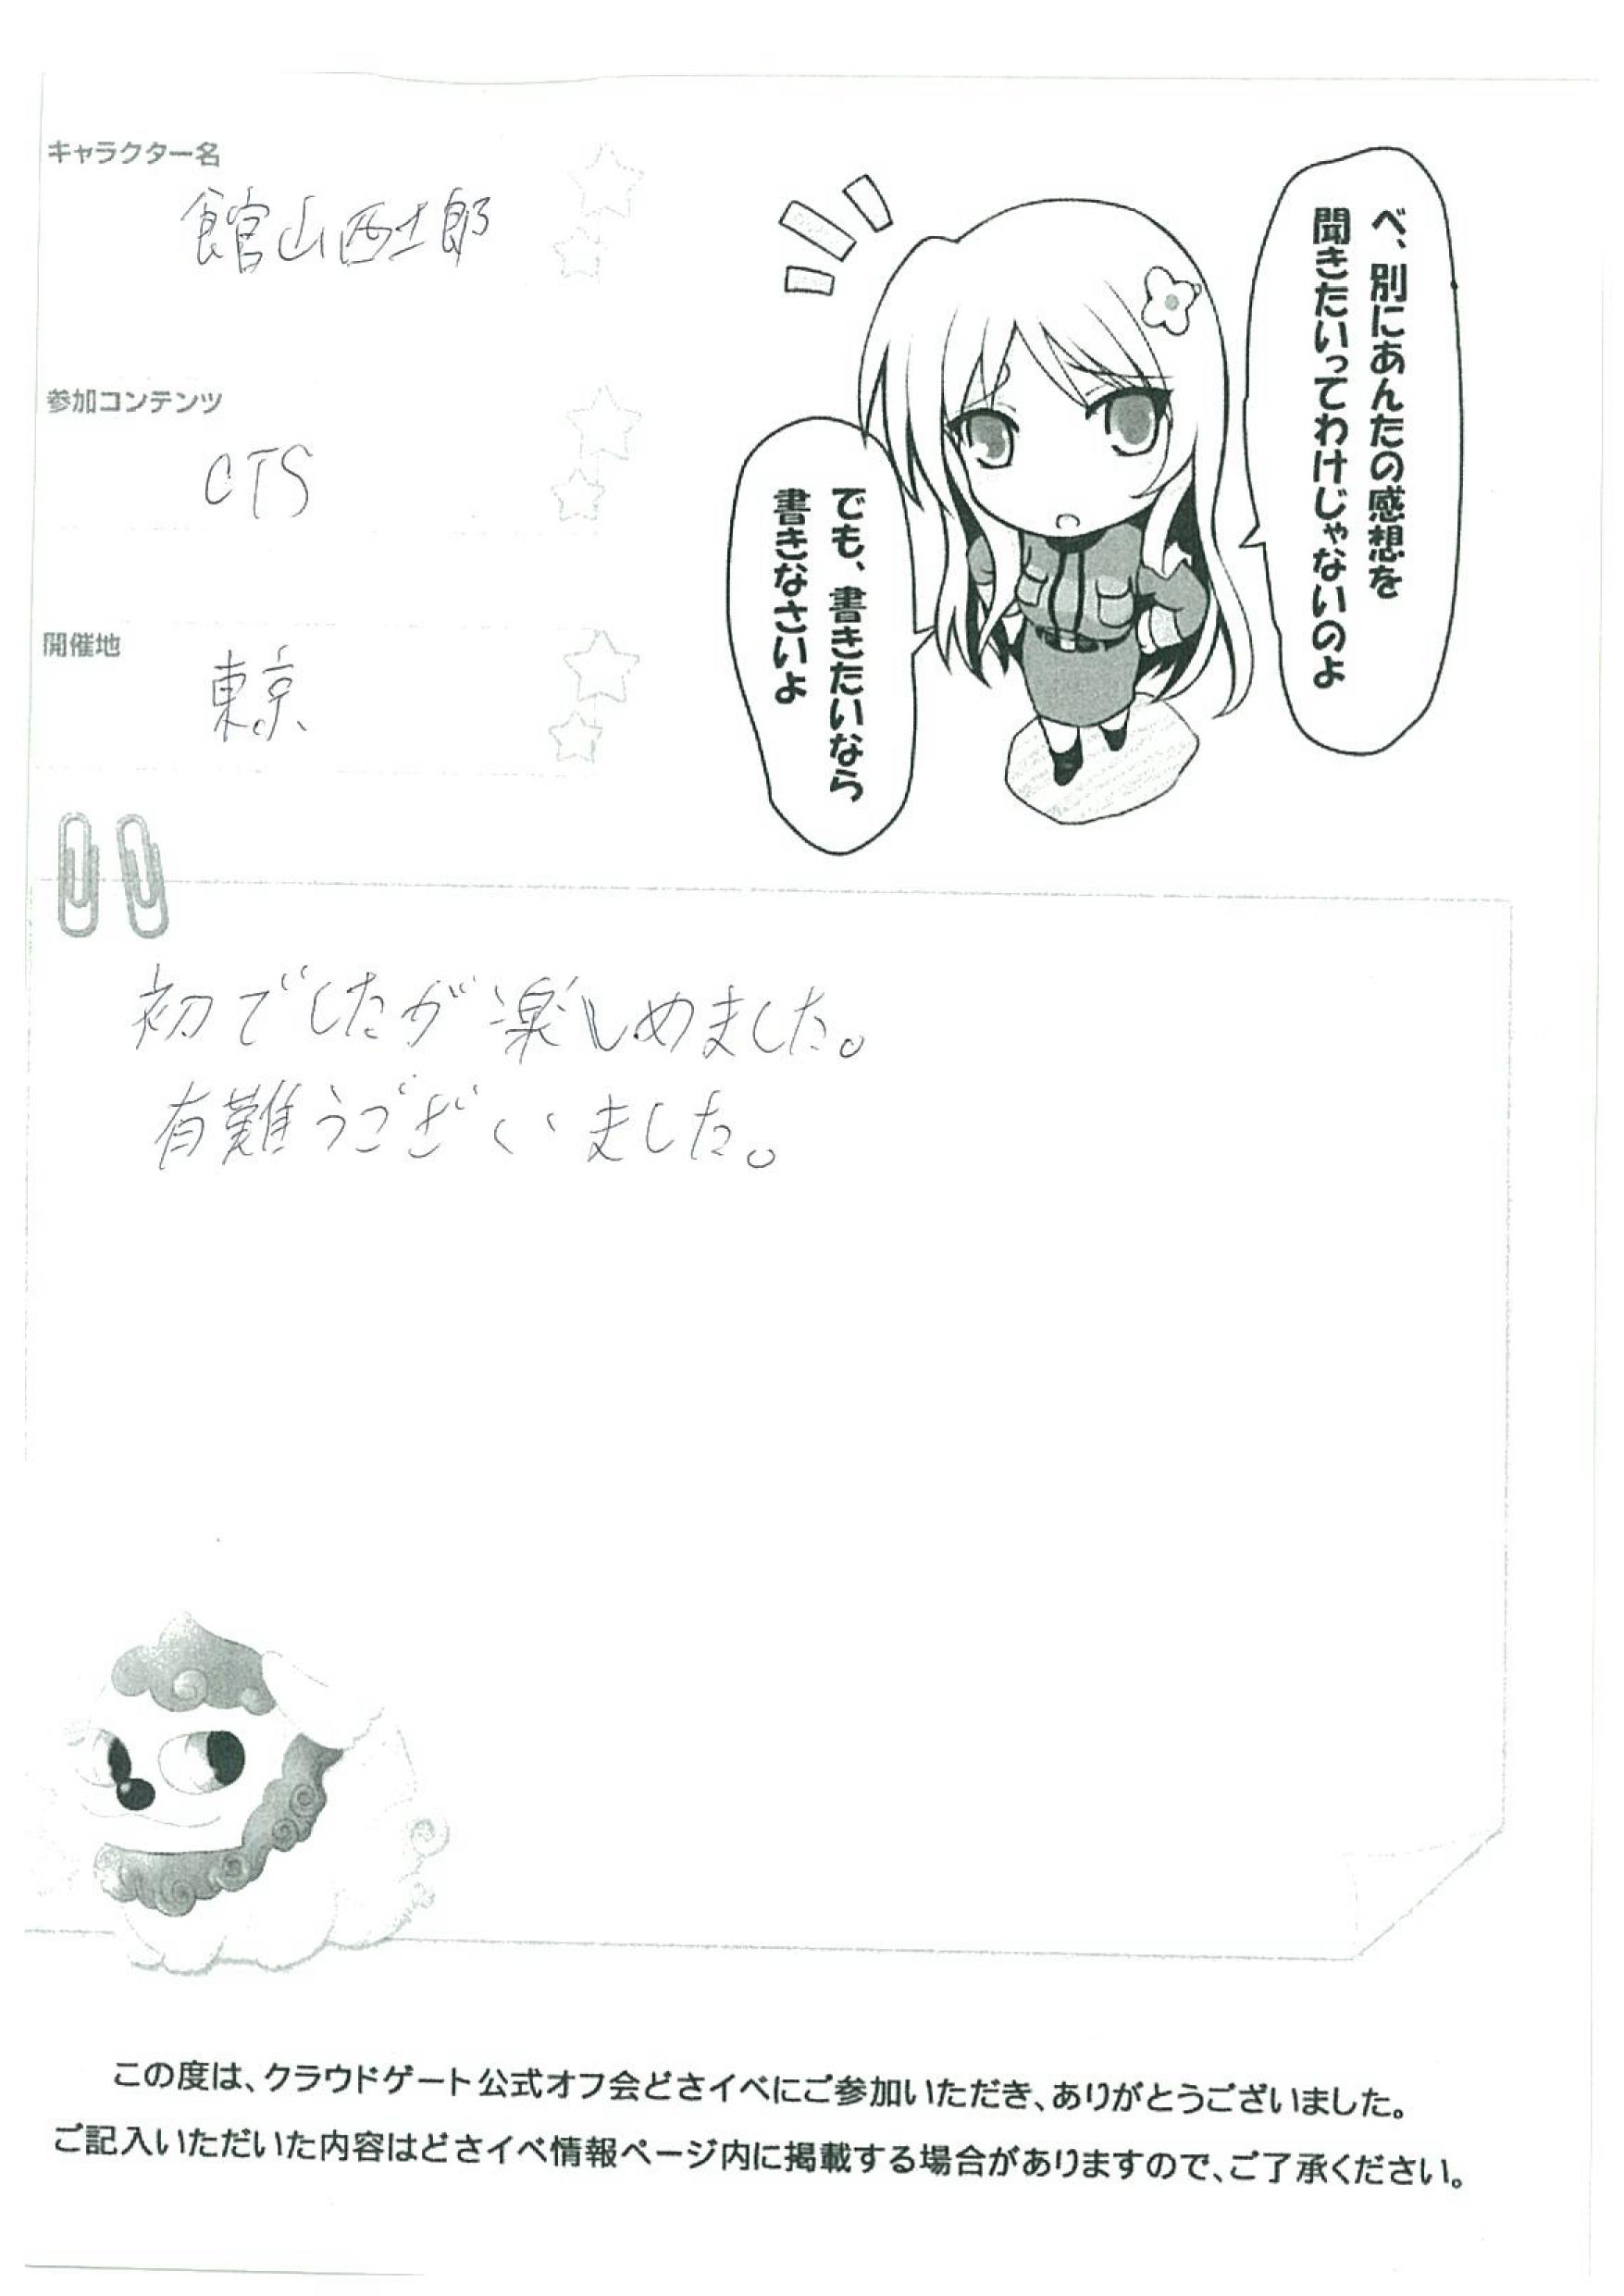 キャラクター名
館山西士郎
参加コンテンツ
CTS
開催地
東京
べ、別にあんたの感想を
聞きたいってわけじゃないのよ
でも、書きたいなら
書きなさいよ
初でしたが楽しめました。
有難うございました。
この度は、クラウドゲート公式オフ会どさイベにご参加いただき、ありがとうございました。
ご記入いただいた内容はどさイベ情報ページ内に掲載する場合がありますので、ご了承ください。